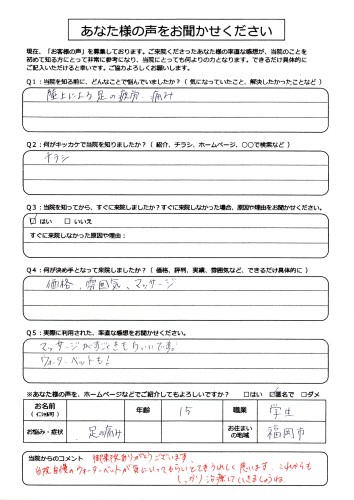 あなた様の声をお聞かせください
現在、「お客様の声」を募集しております。ご来院くださったあなた様の率直な感想が、当院のことを
初めて知る方にとって非常に参考になり、当院にとっても何よりの力となります。できるだけ具体的に
ご記入いただけると幸いです。ご協力よろしくお願いします。
Q1:当院を知る前に、どんなことで悩んでいましたか?(気になっていたこと、解決したかったことなど)
陸上による足の疲労 痛み
Q2:何がキッカケで当院を知りましたか?(紹介、チラシ、ホームページ、〇〇で検索など)
チラシ
Q3:当院を知ってから、すぐに来院しましたか?すぐに来院しなかった場合、原因や理由をお聞かせください。
☑はい □いいえ
すぐに来院しなかった原因や理由:
Q4:何が決め手となって来院しましたか?(価格、評判、実績、雰囲気など、できるだけ具体的に)
価格、雰囲気、マッサージ
Q5:実際に利用された、率直な感想をお聞かせください。
マッサージがすごくきもちいいです。
ウォーターベットも!
※あなた様の声を、ホームページなどでご紹介してもよろしいですか? □はい ☑匿名で □ダメ
お名前
(イニシャル可) 年齢 15 職業 学生
お悩み・症状 足の痛み お住まい
の地域 福岡市
当院からのコメント 御来院ありがとうございます。
当院自慢のウォーターベットが気にいってもらいとてもうれしく思います。これからも
しっかり治療していきましょうね